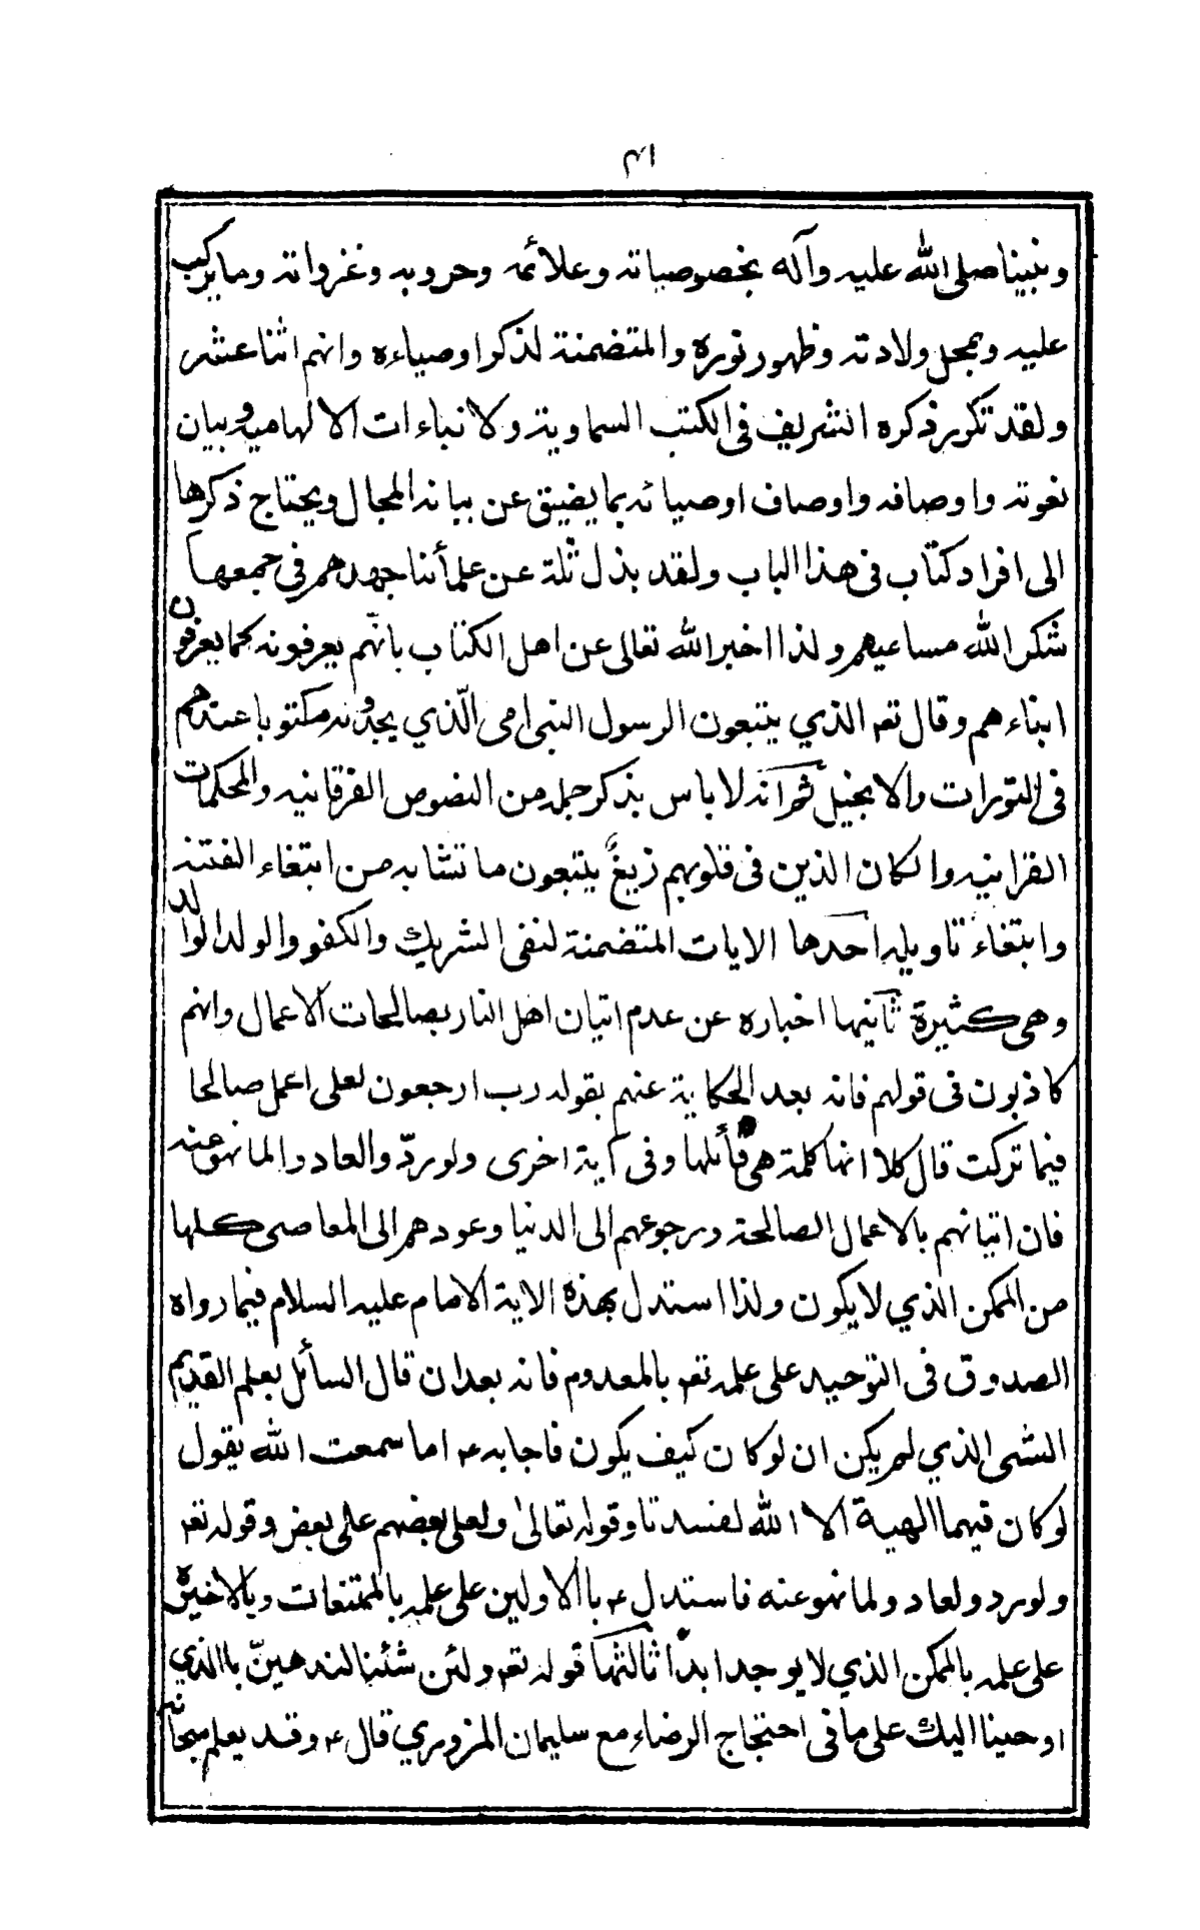 ٤١
ونبينا صلى الله عليه وآله بخصوصياته وعلائمه وحروبه وغزواته وما يركب
عليه وبمحل ولادته وظهور نوره والمتضمنة لذكر اوصياءه وانهم اثنا عشر
ولقد تكرر ذكره الشريف فى الكتب السماوية ولانباءات الالهاميه وبيان
نعوته واوصافه واوصاف اوصيائه بما يضيق عن بيانه المجال ويحتاج ذكرها
الى افراد كتاب فى هذا الباب ولقد بذل ثلة عن علمأنا جهدهم فى جمعها
شكر الله مساعيهم ولذا اخبر الله تعالى عن اهل الكتاب بانّهم يعرفونه كما يعرفون
ابناءهم وقال تعم الذي يتبعون الرسول النبى امى الّذي يجدونه مكتوبا عندهم
فى التورات والانجيل ثم انه لا باس بذكر جمله من النصوص الفرقانيه والمحكمات
القرانيه وانكان الذين فى قلوبهم زيغٌ يتبعون ما تشابه من ابتغاء الفتنه
وابتغاء تاويله احدها الايات المتضمنة لنفى الشريك والكفو والولد الوالد
وهى كثيرة ثانيها اخباره عن عدم اتيان اهل النار بصالحات الاعمال وانهم
كاذبون فى قولهم فانه بعد الحكاية عنهم بقوله رب ارجعون لعلى اعمل صالحا
فيما تركت قال كلا انها كلمة هى قائلها وفى آية اخرى ولو ردّوا لعادوا لما نهو عنه
فان اتيانهم بالاعمال الصالحة ورجوعهم الى الدنيا وعودهم الى المعاصى كلها
من الممكن الذي لا يكون ولذا استدل بهذه الاية الامام عليه السلام فيما رواه
الصدوق فى التوحيد على علمه تعم بالمعدوم فانه بعد ان قال السائل يعلم القديم
الشى الذي لم يكن ان لو كان كيف يكون فاجابه ع اما سمعت الله يقول
لو كان فيهما الهية الا الله لفسدتا وقوله تعالى ولعلى بعضهم على بعض وقوله تعم
ولو ردو لعادو لما نهو عنه فاستدل ع باالاولين على علمه بالممتنعات وبالاخيرة
على علمه بالممكن الذي لا يوجد ابداً ثالثها قوله تعم ولئن شئنا لنذهبنّ باالذي
اوحينا اليك على ما فى احتجاج الرضاء مع سليمان المزوري قال ع وقد يعلم سبحانه